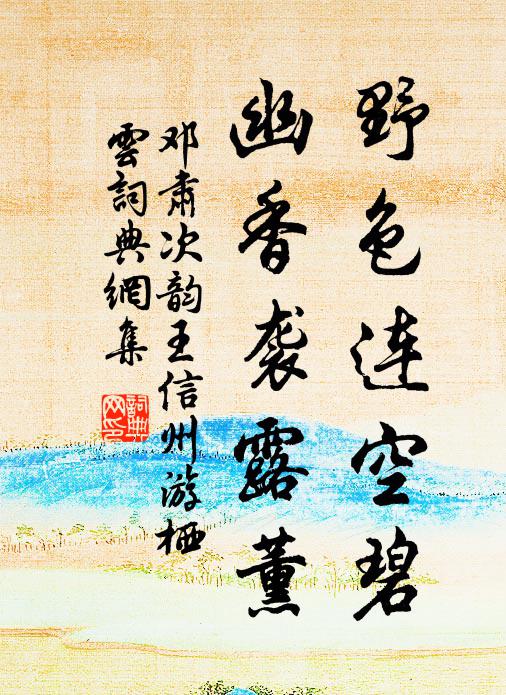 野色连空碧
幽香袭露薰
邓肃次韵王信州游栖
雲詞典網集
詞典网印